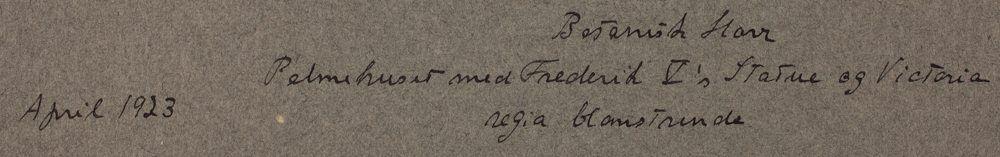 Botanisk Have
Palmehuset med Frederik V's Statue og Victoria
regia blomstrende
April 1923